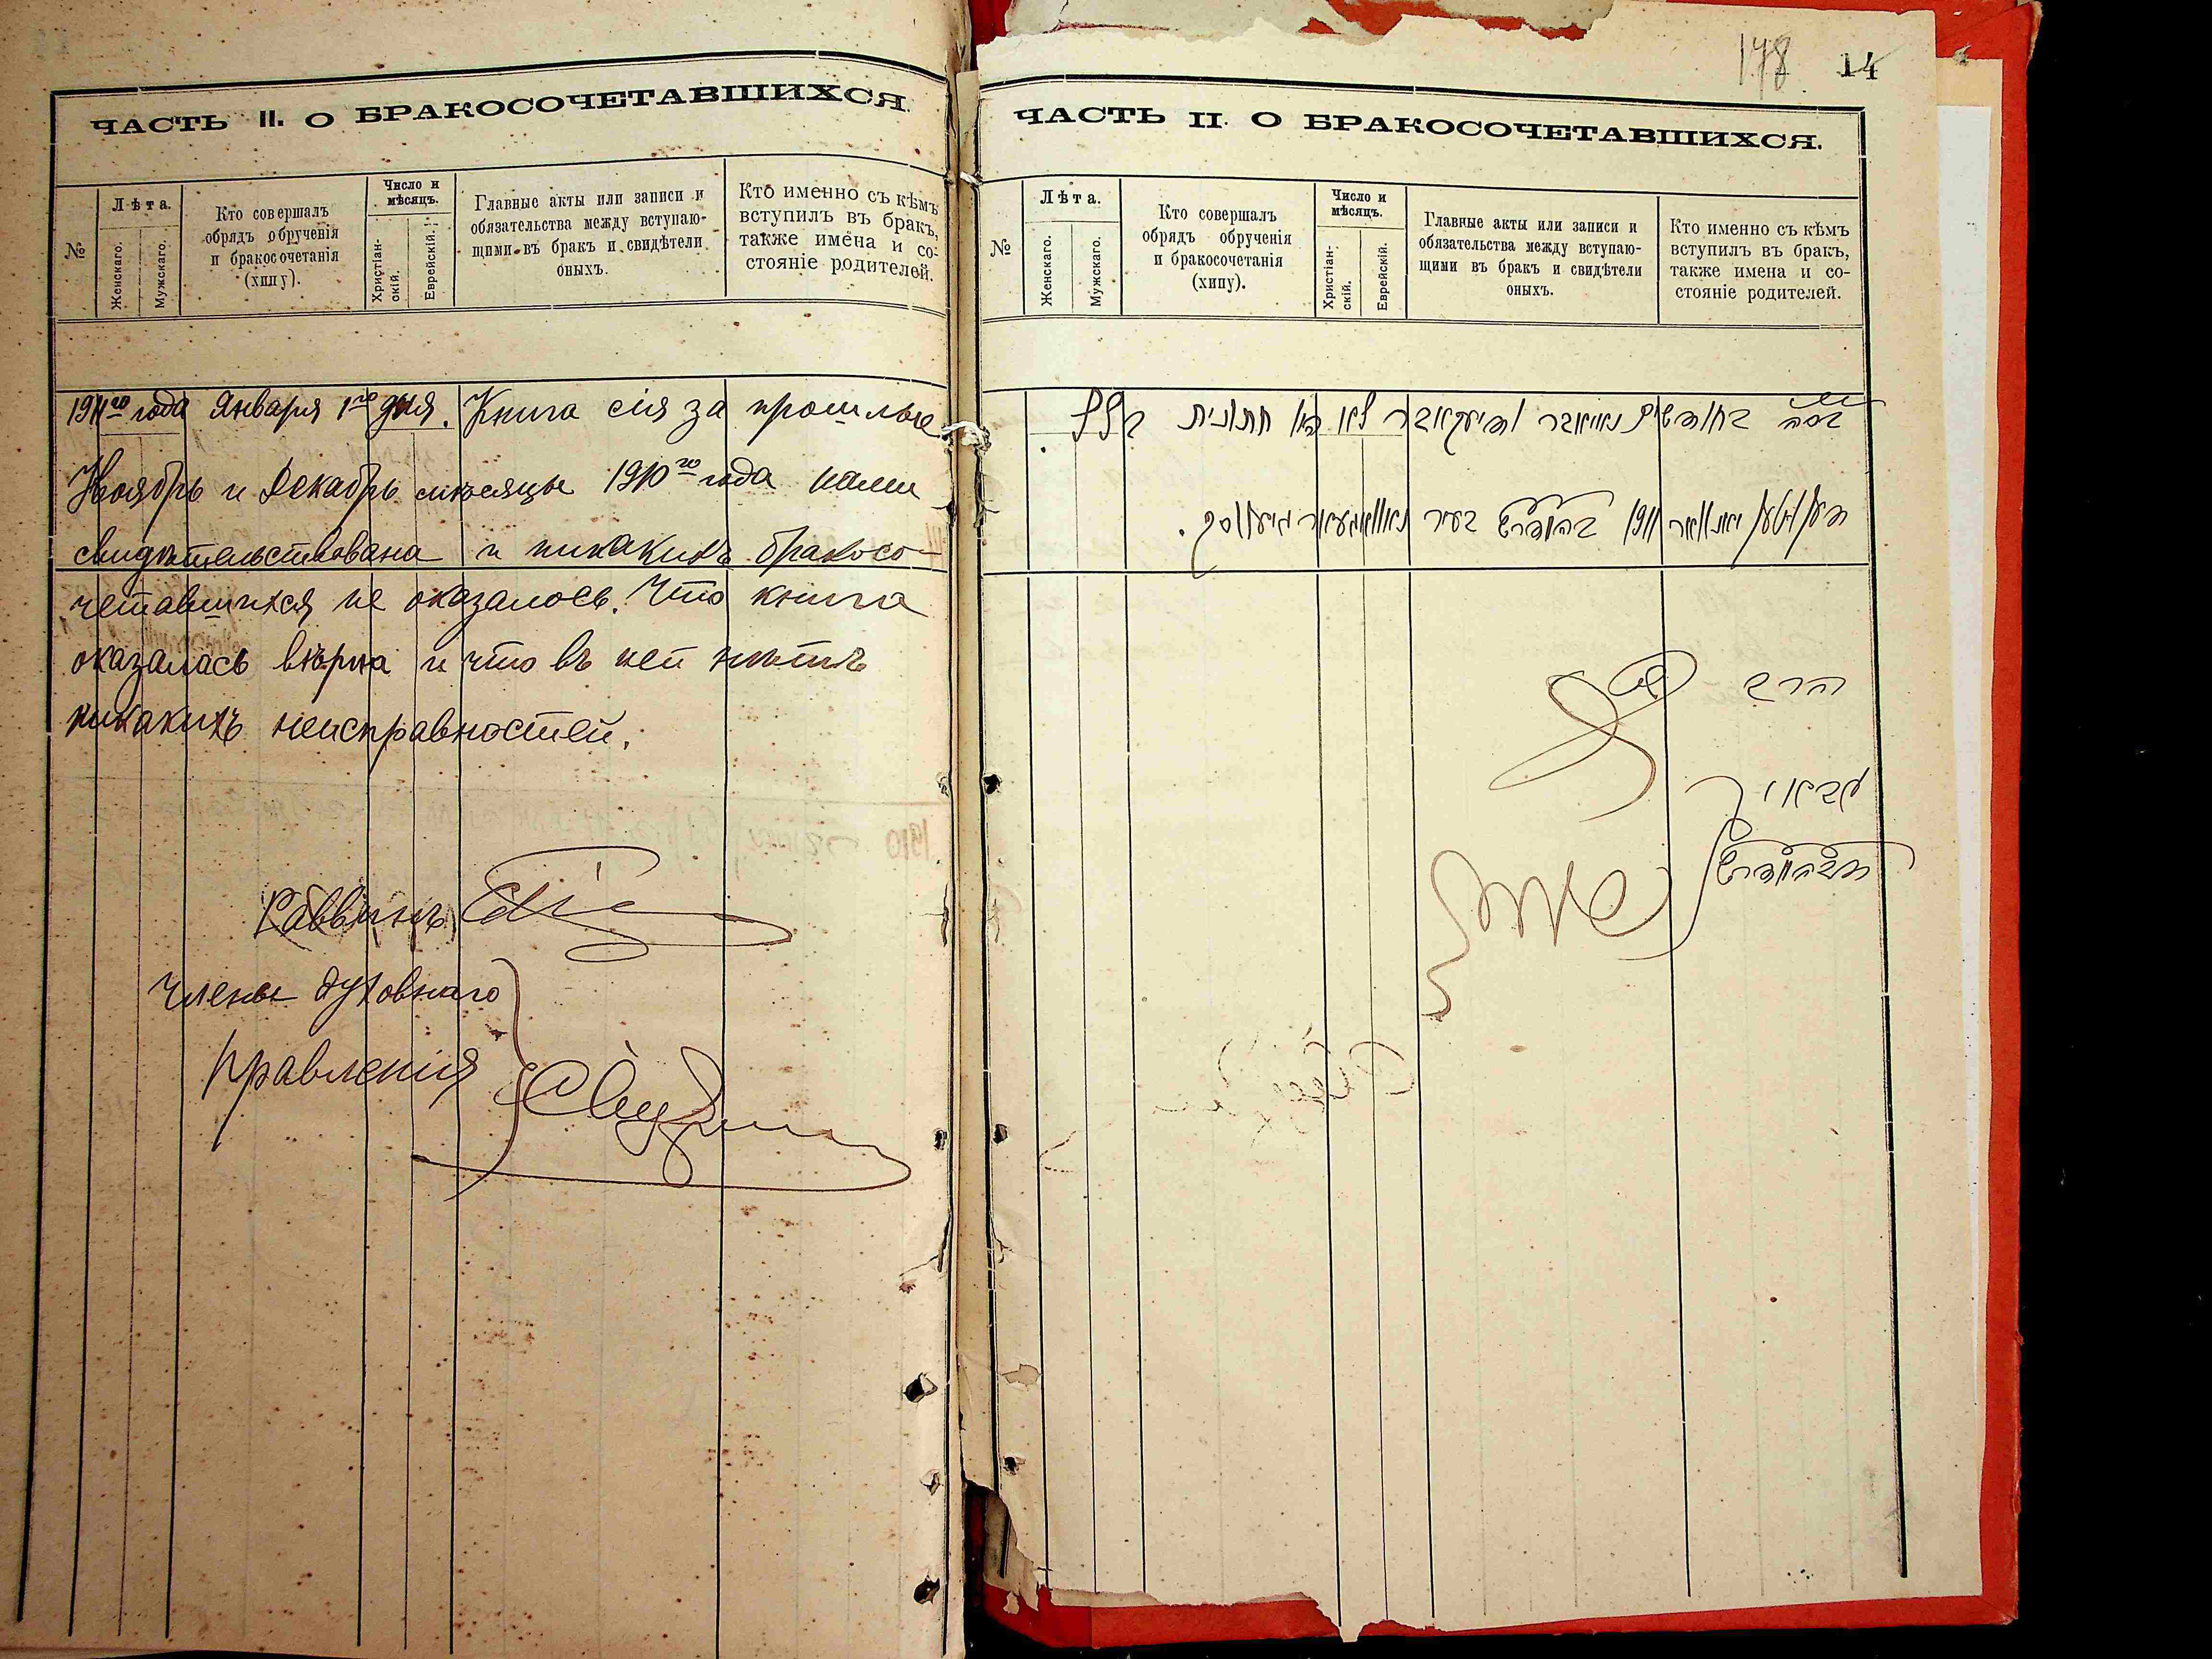 ЧАСТЬ II. О БРАКОСОЧЕТАВШИХСЯ.
№
Лѣта.
Женскаго.
Мужскаго.
Кто совершалъ
обрядъ обрученія
и бракосочетанія
(хипу).
Число и
мѣсяцъ.
Христіан-
скій.
Еврейскій.
Главные акты или записи и
обязательства между вступаю-
щими въ бракъ и свидѣтели
оныхъ.
Кто именно съ кѣмъ
вступилъ въ бракъ,
также имена и со-
стояніе родителей.
1911го года Января 1го дня. Книга сія за прошлые
Ноябрь и Декабрь мѣсяцы 1910го года нами
свидѣтельствована и никакихъ бракосо-
четавшихся не оказалось. Что книга
оказалась вѣрна и что въ ней нѣтъ
никакихъ неисправностей.
Раввинъ
Члены духовнаго
правленія
178 14
ЧАСТЬ II. О БРАКОСОЧЕТАВШИХСЯ.
№
Лѣта.
Женскаго.
Мужскаго.
Кто совершалъ
обрядъ обрученія
и бракосочетанія
(хипу).
Число и
мѣсяцъ.
Христіан-
скій.
Еврейскій.
Главные акты или записи и
обязательства между вступаю-
щими въ бракъ и свидѣтели
оныхъ.
Кто именно съ кѣмъ
вступилъ въ бракъ,
также имена и со-
стояніе родителей.
בחדשים נאיאבר ודיעקאבר לא היו חתונית כלל.
יאנואר 1911 בהוועד בעיר
הרב
גבאי
דבהוועד